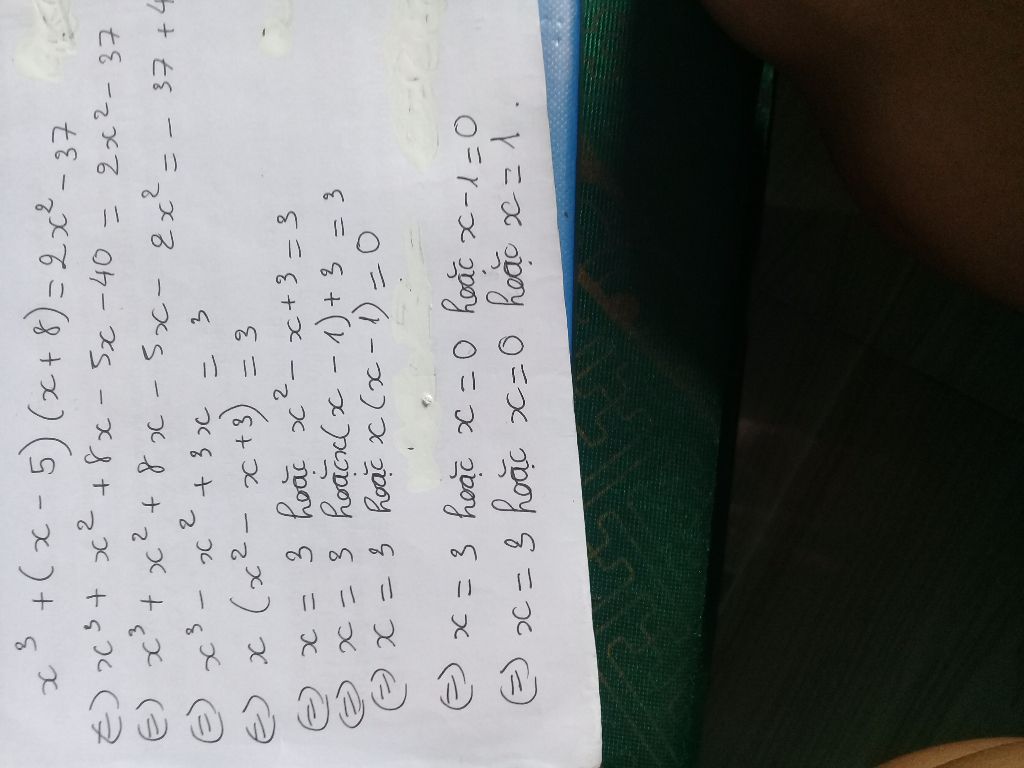 x³ + (x - 5)(x + 8) = 2x² - 37
(=) x³ + x² + 8x - 5x - 40 = 2x² - 37
(=) x³ + x² + 8x - 5x - 2x² = - 37 + 4
(=) x³ - x² + 3x = 3
(=) x (x² - x + 3) = 3
(=) x = 3 hoặc x² - x + 3 = 3
(=) x = 3 hoặc x(x - 1) + 3 = 3
(=) x = 3 hoặc x(x - 1) = 0
(=) x = 3 hoặc x = 0 hoặc x - 1 = 0
(=) x = 3 hoặc x = 0 hoặc x = 1.